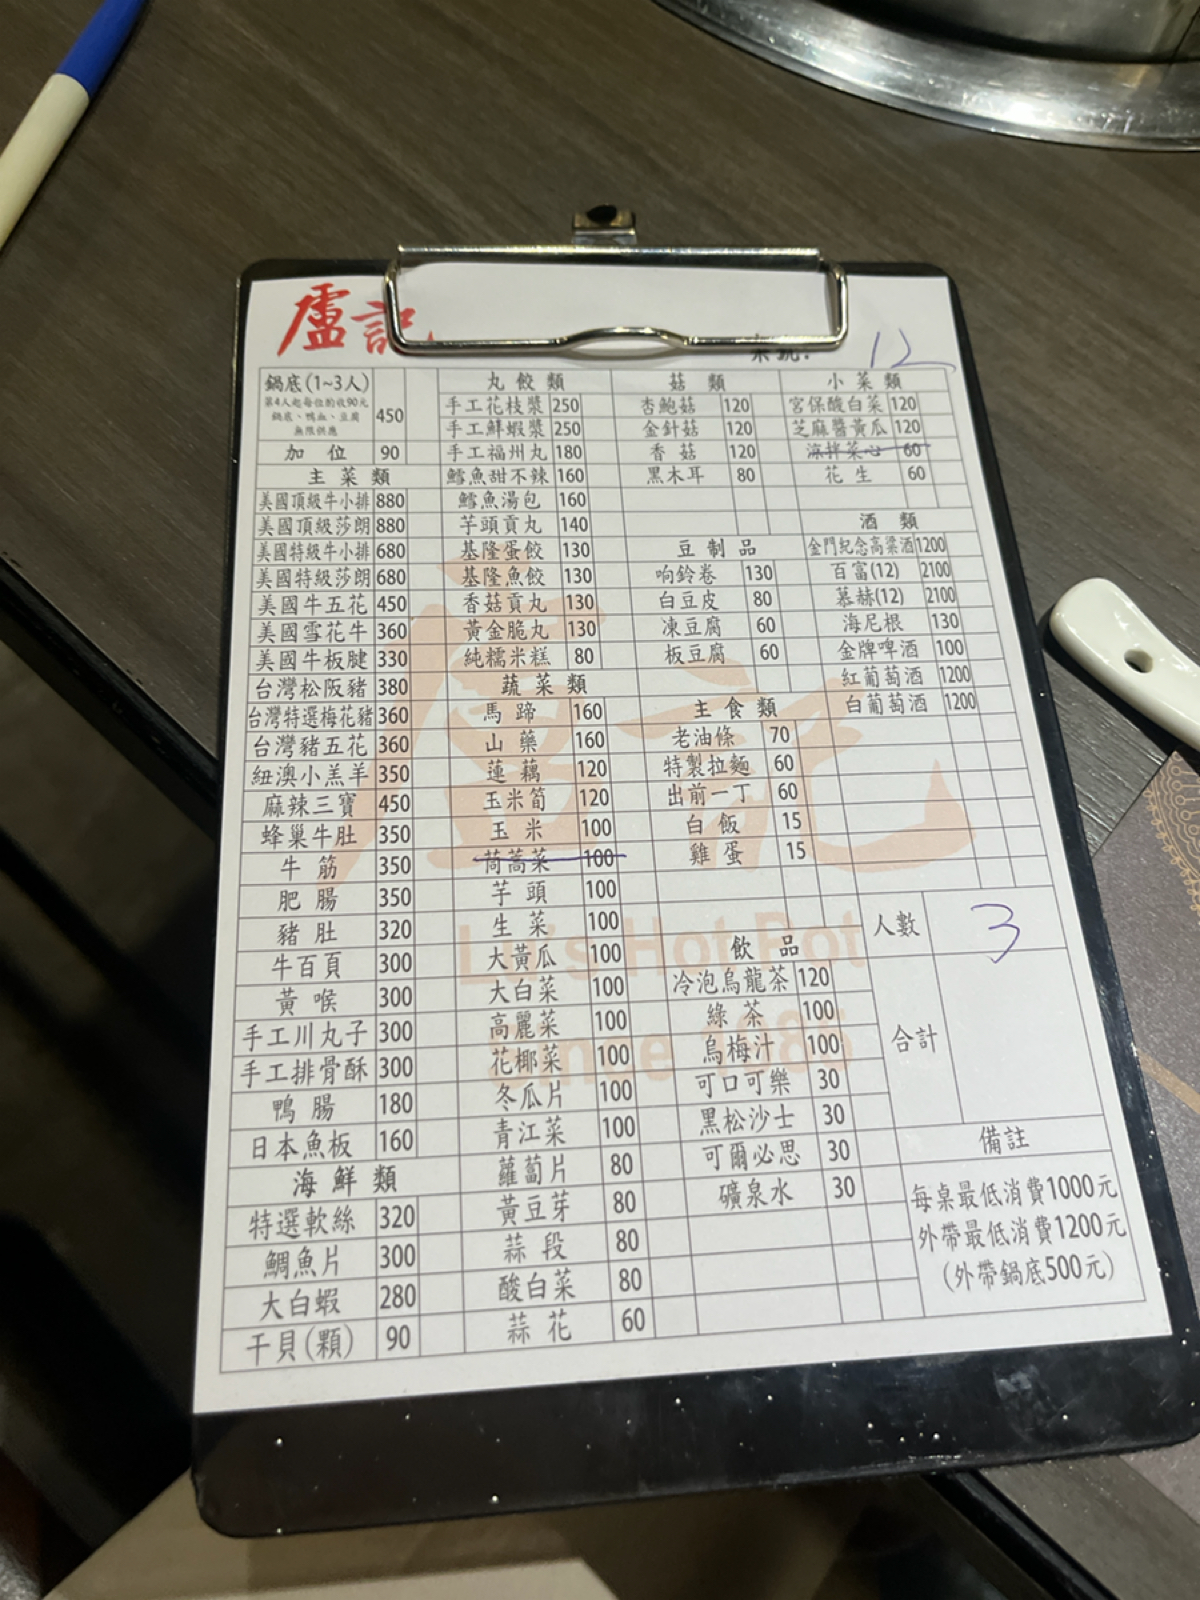 盧記
12
鍋底(1~3人) 450
第4人起每位酌收90元
鍋底、鴨血、豆腐
無限供應
加位 90
主菜類
美國頂級牛小排 880
美國頂級莎朗 880
美國特級牛小排 680
美國特級莎朗 680
美國牛五花 450
美國雪花牛 360
美國牛板腱 330
台灣松阪豬 380
台灣特選梅花豬 360
台灣豬五花 360
紐澳小羔羊 350
麻辣三寶 450
蜂巢牛肚 350
牛筋 350
肥腸 350
豬肚 320
牛百頁 300
黃喉 300
手工川丸子 300
手工排骨酥 300
鴨腸 180
日本魚板 160
海鮮類
特選軟絲 320
鯛魚片 300
大白蝦 280
干貝(顆) 90
丸餃類
手工花枝漿 250
手工鮮蝦漿 250
手工福州丸 180
鱈魚甜不辣 160
鱈魚湯包 160
芋頭貢丸 140
基隆蛋餃 130
基隆魚餃 130
香菇貢丸 130
黃金脆丸 130
純糯米糕 80
蔬菜類
馬蹄 160
山藥 160
蓮藕 120
玉米筍 120
玉米 100
茼蒿菜 100
芋頭 100
生菜 100
大黃瓜 100
大白菜 100
高麗菜 100
花椰菜 100
冬瓜片 100
青江菜 100
蘿蔔片 80
黃豆芽 80
蒜段 80
酸白菜 80
蒜花 60
菇類
杏鮑菇 120
金針菇 120
香菇 120
黑木耳 80
豆制品
响鈴卷 130
白豆皮 80
凍豆腐 60
板豆腐 60
主食類
老油條 70
特製拉麵 60
出前一丁 60
白飯 15
雞蛋 15
飲品
冷泡烏龍茶 120
綠茶 100
烏梅汁 100
可口可樂 30
黑松沙士 30
可爾必思 30
礦泉水 30
小菜類
宮保酸白菜 120
芝麻醬黃瓜 120
涼拌菜心 60
花生 60
酒類
金門紀念高粱酒 1200
百富(12) 2100
慕赫(12) 2100
海尼根 130
金牌啤酒 100
紅葡萄酒 1200
白葡萄酒 1200
人數 3
合計
備註
每桌最低消費1000元
外帶最低消費1200元
(外帶鍋底500元)
盧記
Lu's Hot Pot
Since 1985